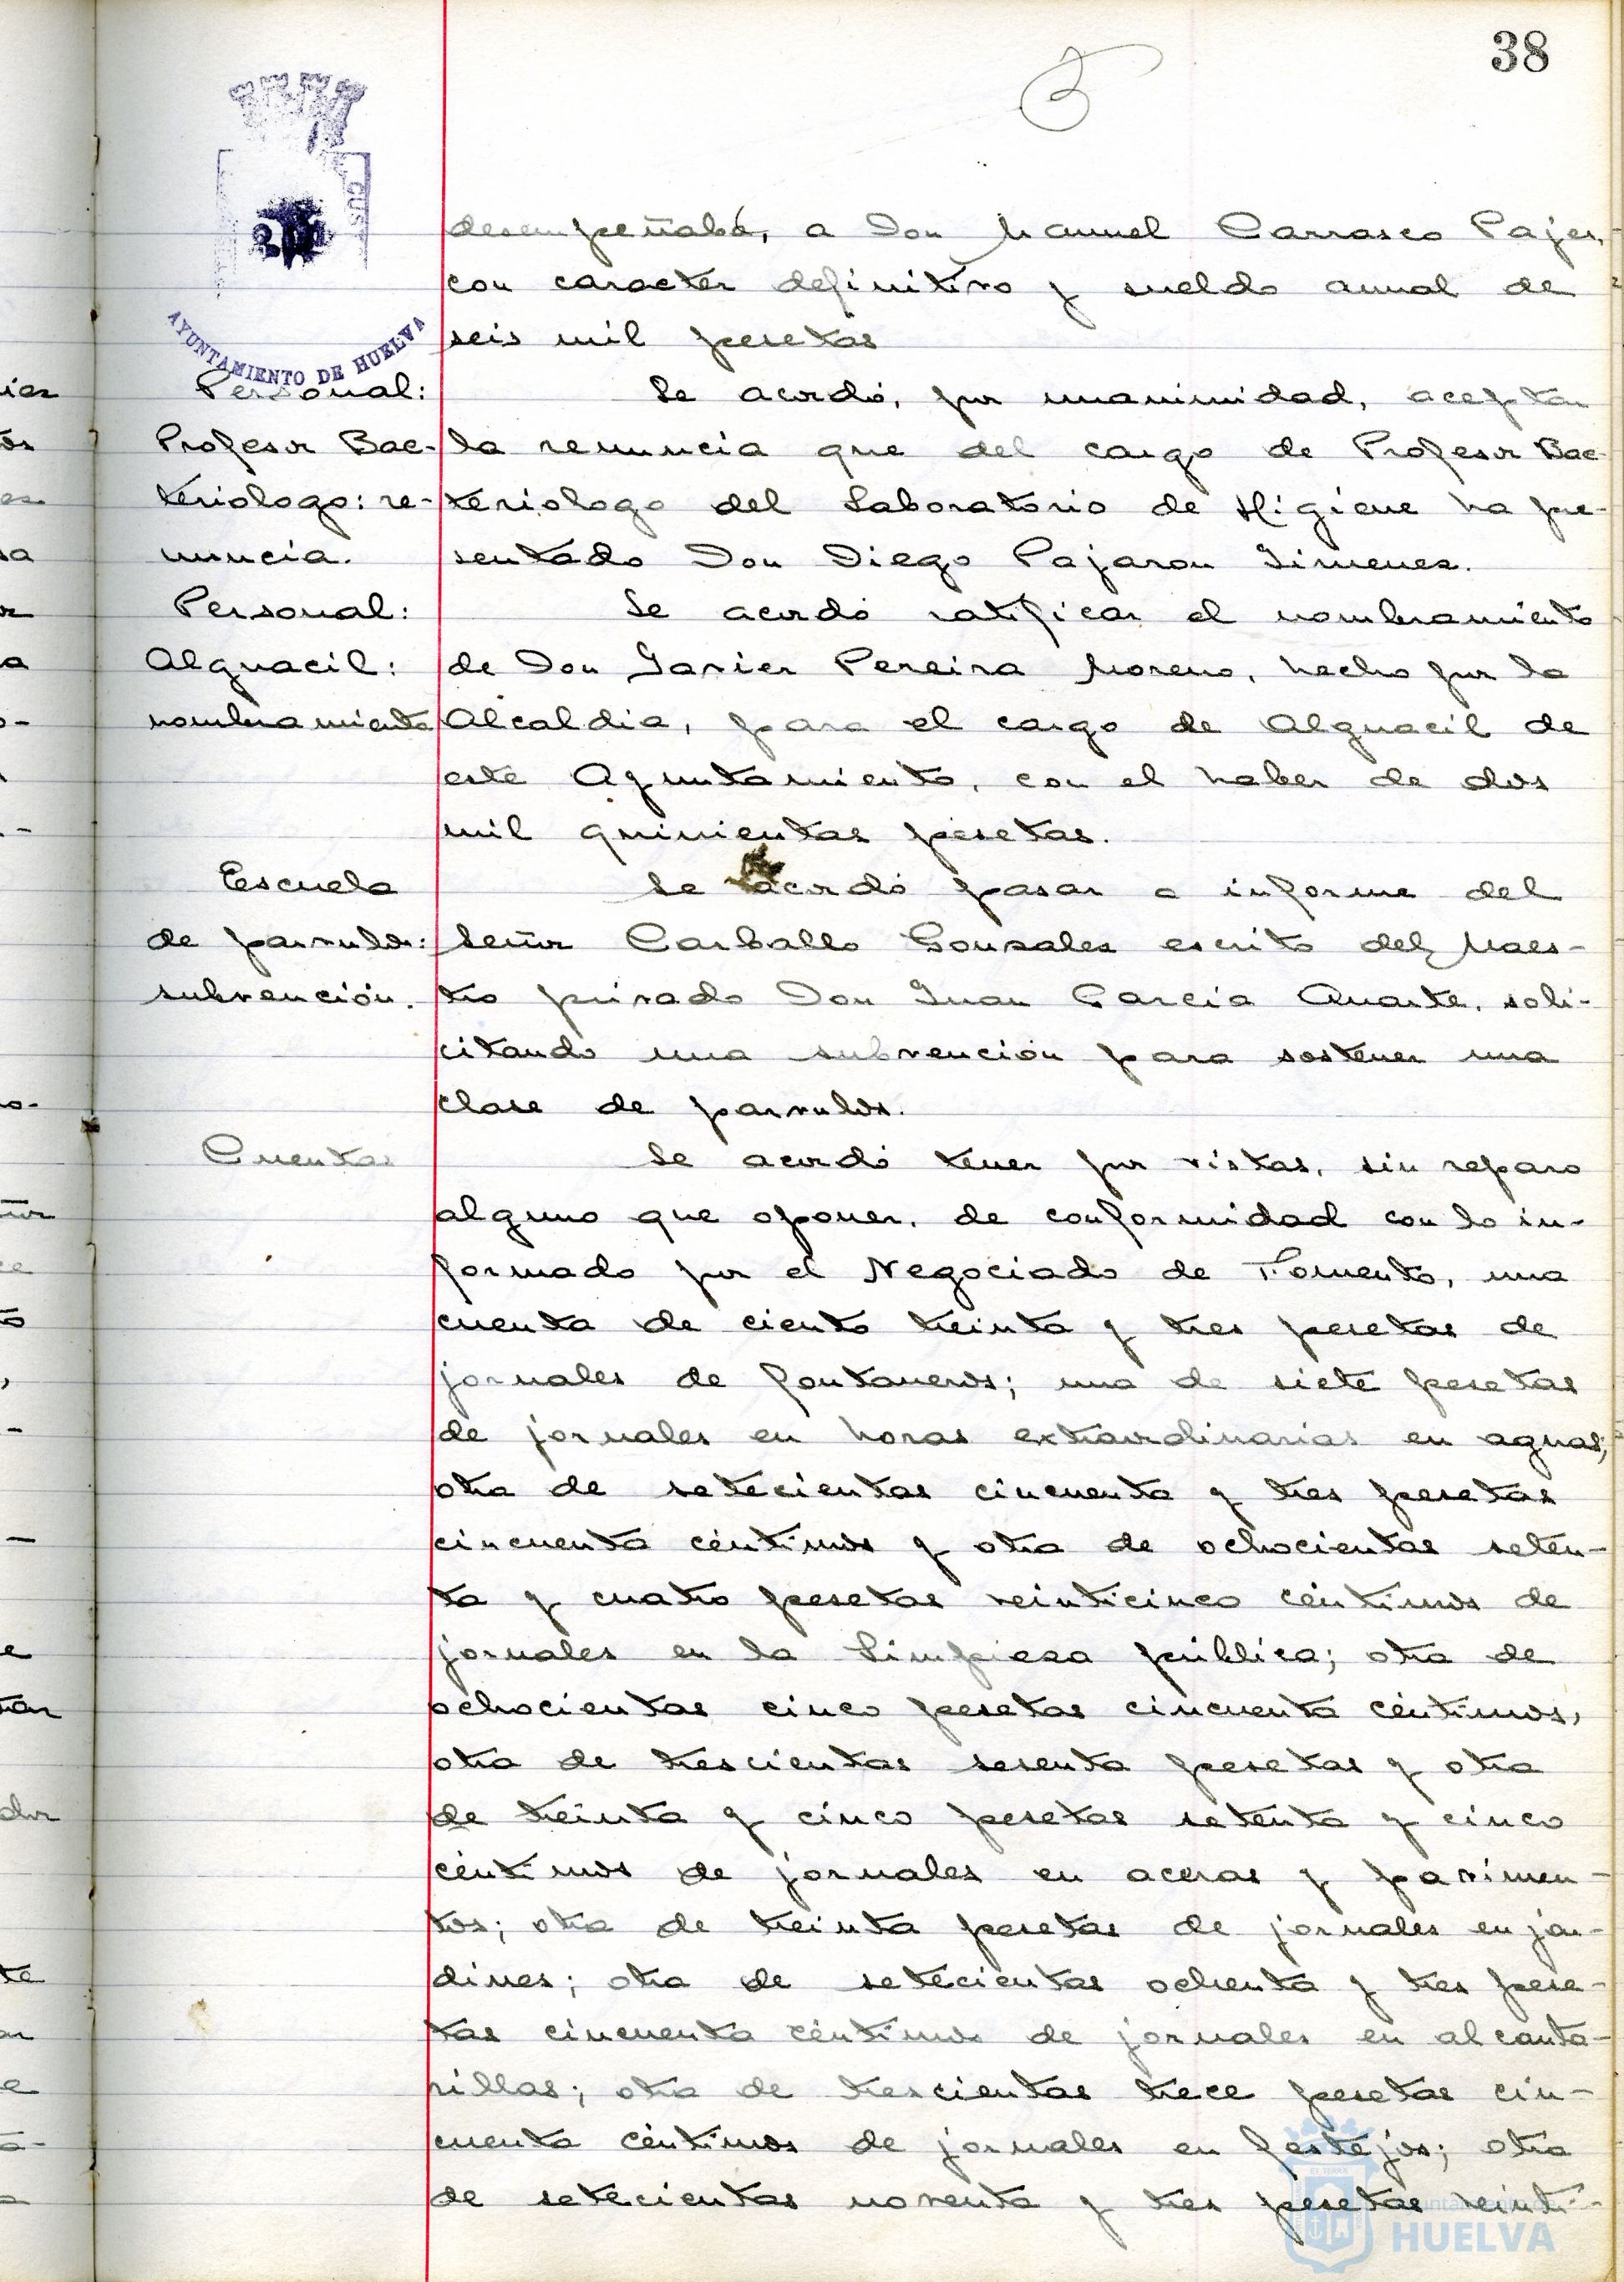 38
AYUNTAMIENTO DE HUELVA
desempeñaba, a Don Manuel Carrasco Pajes,
con caracter definitivo y sueldo anual de
seis mil pesetas
Personal:
Profesor Bac-
teriologo: re-
nuncia.
Se acordó, por unanimidad, aceptar
la renuncia que del cargo de Profesor Bac-
teriologo del Laboratorio de Higiene ha pre-
sentado Don Diego Pajaron Jimenez.
Personal:
Alguacil:
nombramiento
Se acordó ratificar el nombramiento
de Don Javier Pereira Moreno, hecho por la
Alcaldia, para el cargo de Alguacil de
este Ayuntamiento, con el haber de dos
mil quinientas pesetas.
Escuela
de parvulos:
subvención.
Se acordó pasar a informe del
Señor Carballo Gonzalez escrito del Maes-
tro privado Don Juan Garcia Duarte, soli-
citando una subvención para sostener una
clase de parvulos.
Cuentas
Se acordó tener por vistas, sin reparo
alguno que oponer, de conformidad con lo in-
formado por el Negociado de Fomento, una
cuenta de ciento treinta y tres pesetas de
jornales de fontaneros; una de siete pesetas
de jornales en horas extraordinarias en aguas;
otra de setecientas cincuenta y tres pesetas
cincuenta céntimos y otra de ochocientas seten-
ta y cuatro pesetas veinticinco céntimos de
jornales en la limpieza pública; otra de
ochocientas cinco pesetas cincuenta céntimos,
otra de trescientas sesenta pesetas y otra
de treinta y cinco pesetas setenta y cinco
céntimos de jornales en aceras y pavimen-
tos; otra de treinta pesetas de jornales en jar-
dines; otra de setecientas ochenta y tres pese-
tas cincuenta céntimos de jornales en alcanta-
rillas; otra de trescientas trece pesetas cin-
cuenta céntimos de jornales en festejos; otra
de setecientas noventa y tres pesetas veinti-
HUELVA